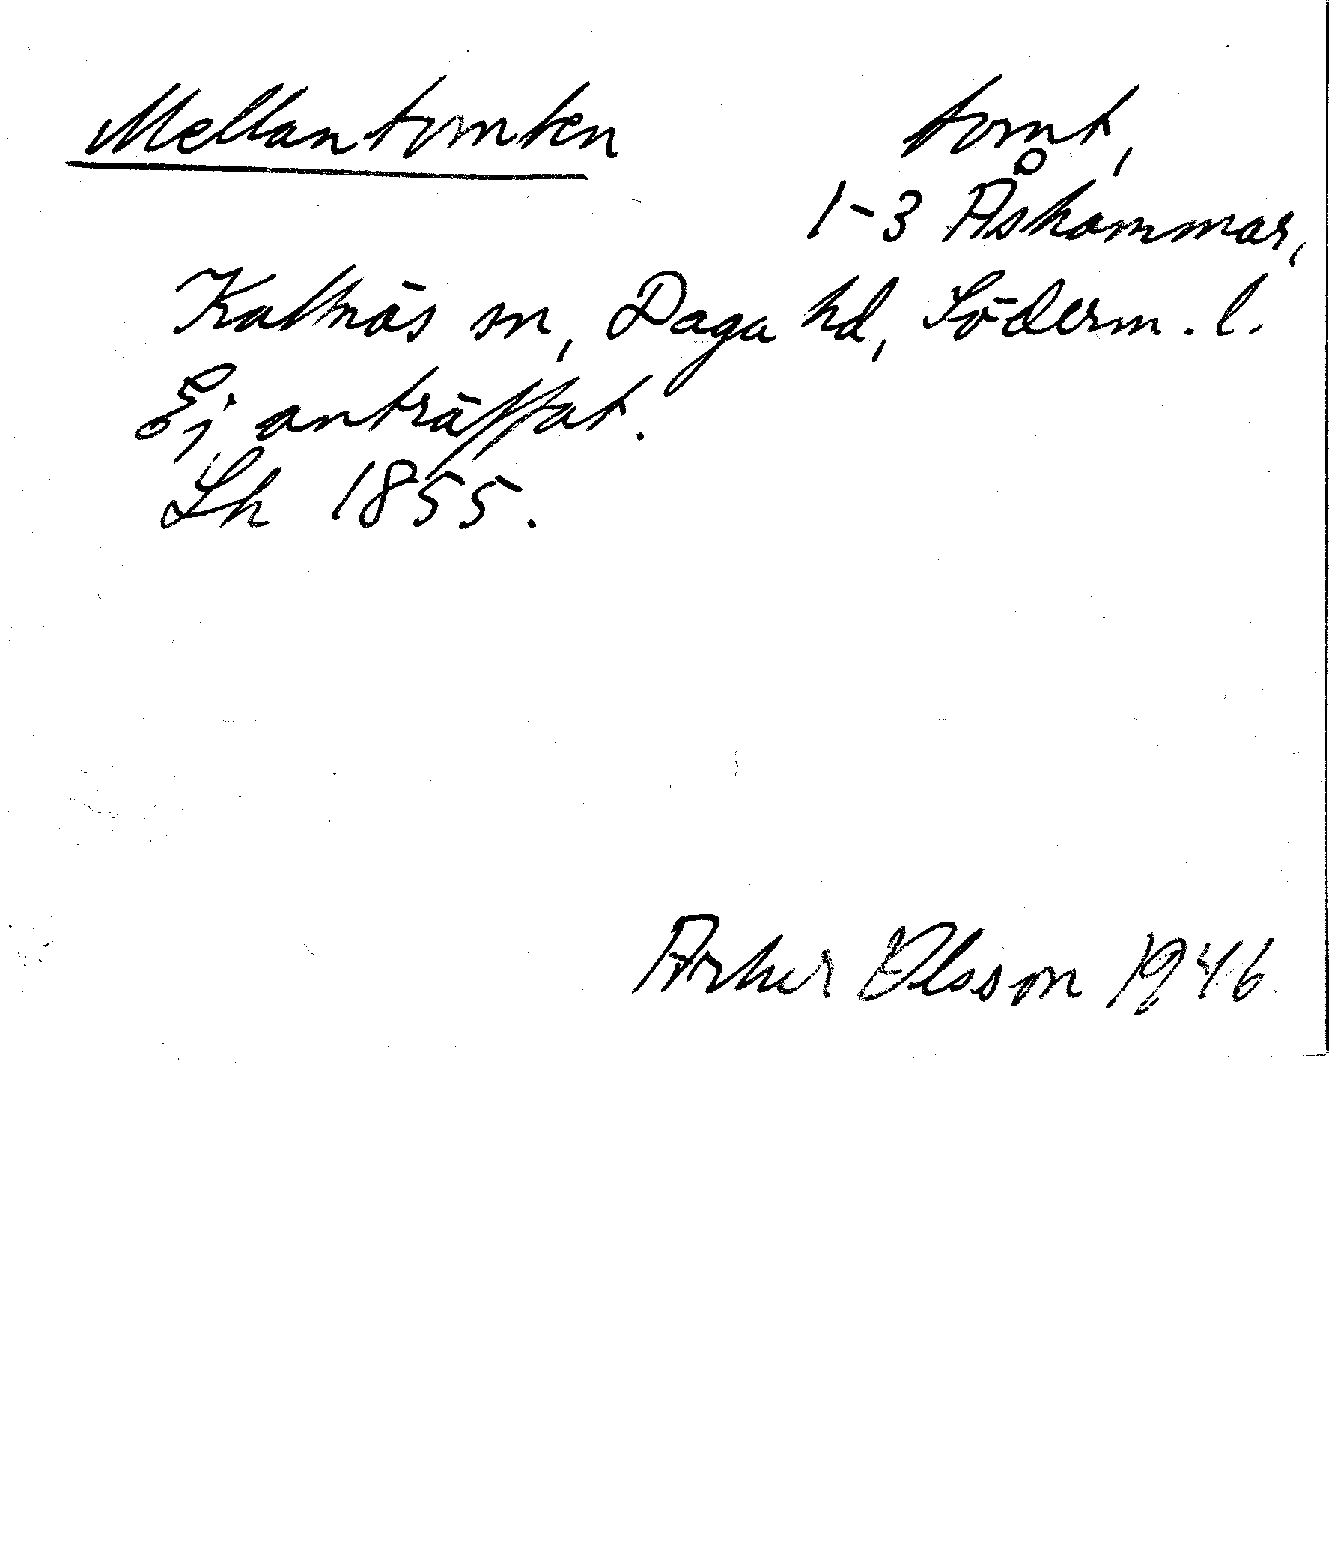 Mellantomten tomt,
1-3 Åskammar,
Kattnäs sn, Daga hd, Söderm. l.
Ej anträffat.
Lh 1855.
Olsson 1946